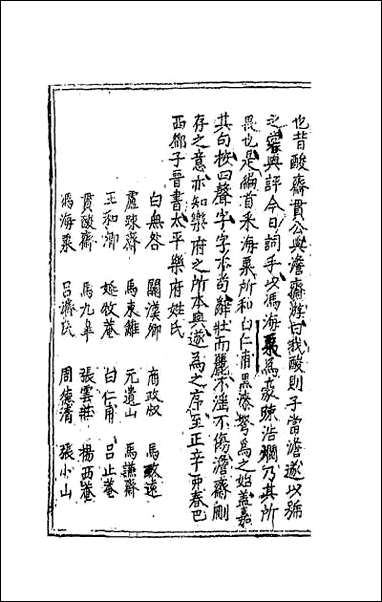 也昔酸齋貫公與澹齋游曰我酸則子當澹遂以號
之嘗與評今日詞手以馮海粟爲豪辣浩爛乃其所
畏也是編首采海粟所和白仁甫黑漆弩爲之始蓋嘉
其句按四聲字字不苟辭壯而麗不淫不傷澹齋刪
存之意亦知樂府之所本與遂爲之序至正辛卯春巴
西鄧子晉書太平樂府姓氏
白無咎 關漢卿 商政叔 馬致遠
盧疎齋 馬東籬 元遺山 馬謙齋
王和卿 姚牧菴 白仁甫 呂止菴
貫酸齋 馬九臯 張雲莊 楊西菴
馮海粟 呂濟民 周德清 張小山